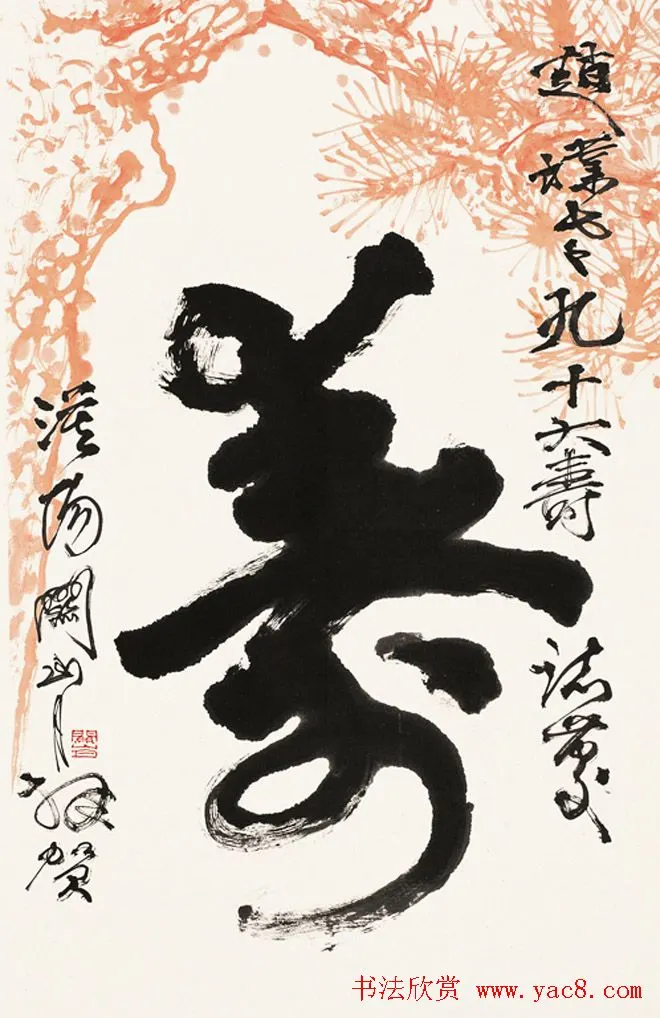 趙樸老九十大壽
誌慶
壽
漠陽關山月敬賀
书法欣赏 www.yac8.com